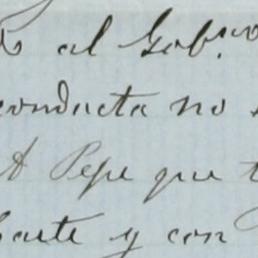 al Gob.no
conducta no
A Pepe que
y con